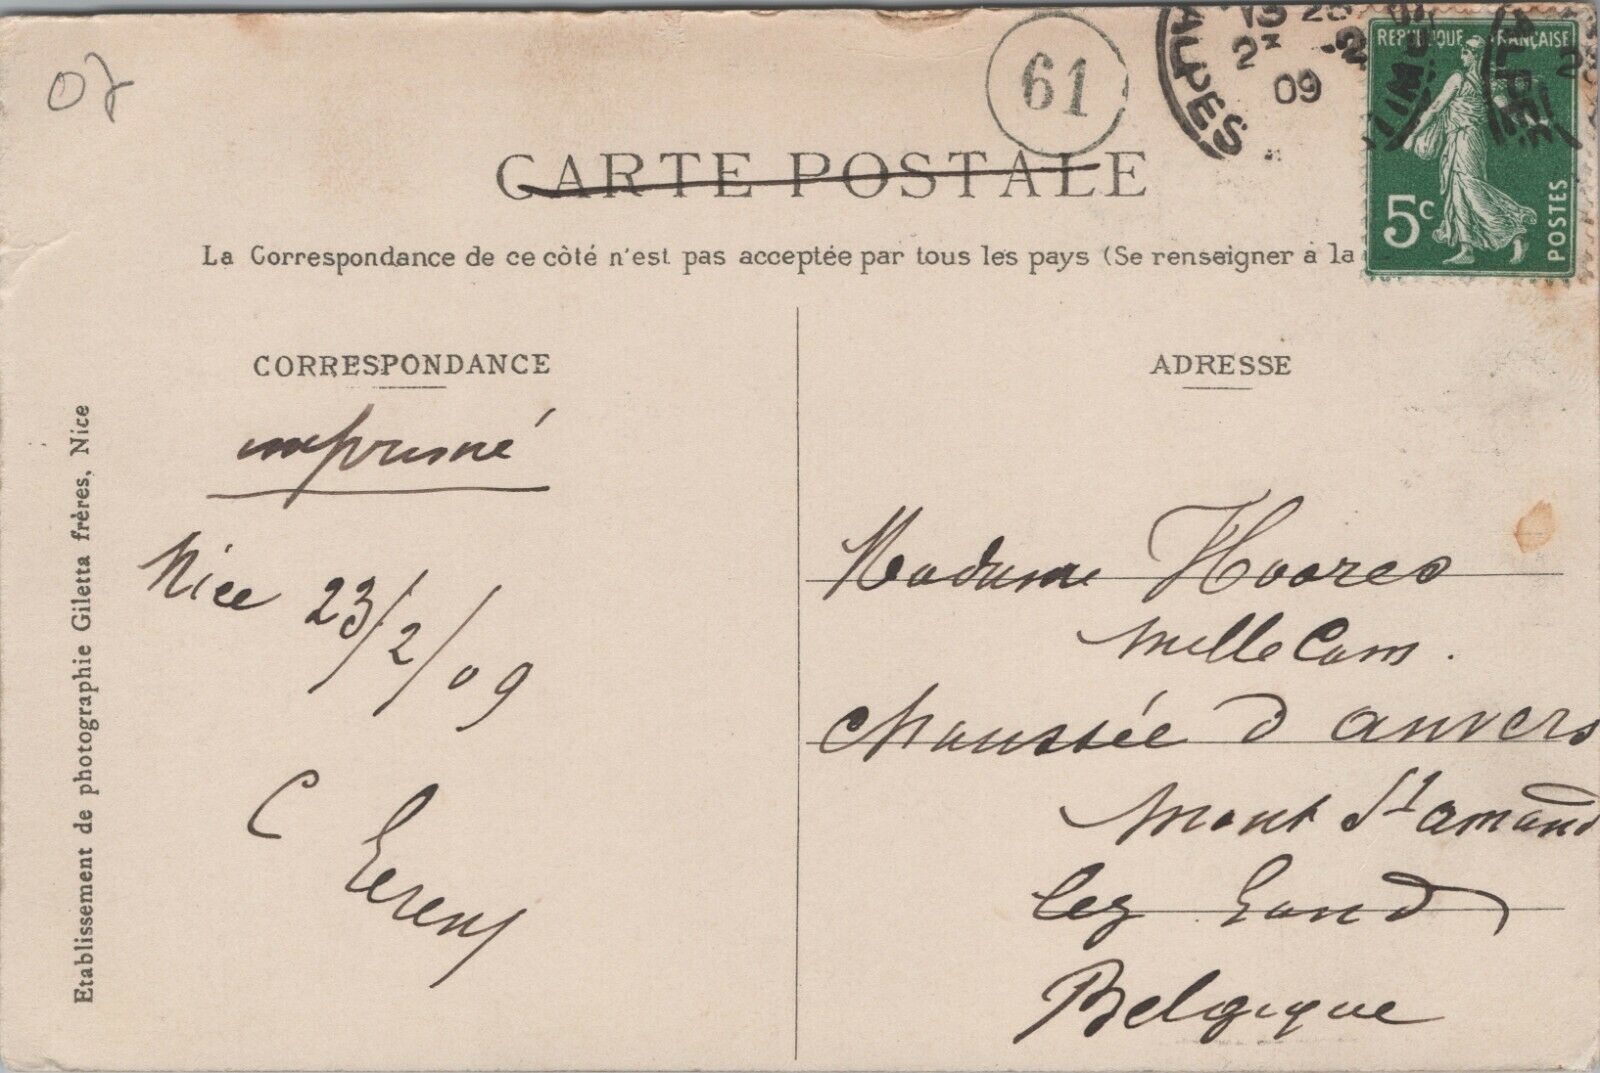 07
61
ALPES
13 25
2 -2
09
REPUBLIQUE FRANÇAISE
5c
POSTES
CARTE POSTALE
La Correspondance de ce côté n'est pas acceptée par tous les pays (Se renseigner à la
CORRESPONDANCE
imprimé
Nice 23/2/09
C
ADRESSE
Madame Hoores
Mellecam.
Chaussée d'anvers
Mont St amand
lez Gand
Belgique
Etablissement de photographie Giletta frères, Nice